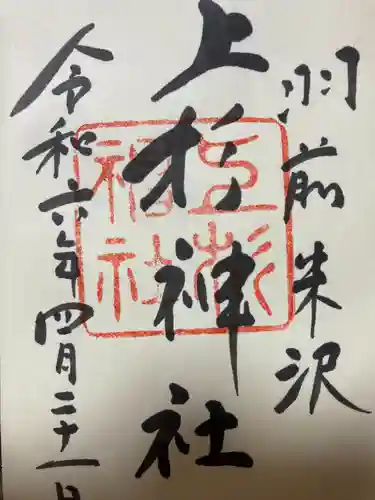 羽前米沢
上杉神社
上杉
神社
令和六年四月二十一日